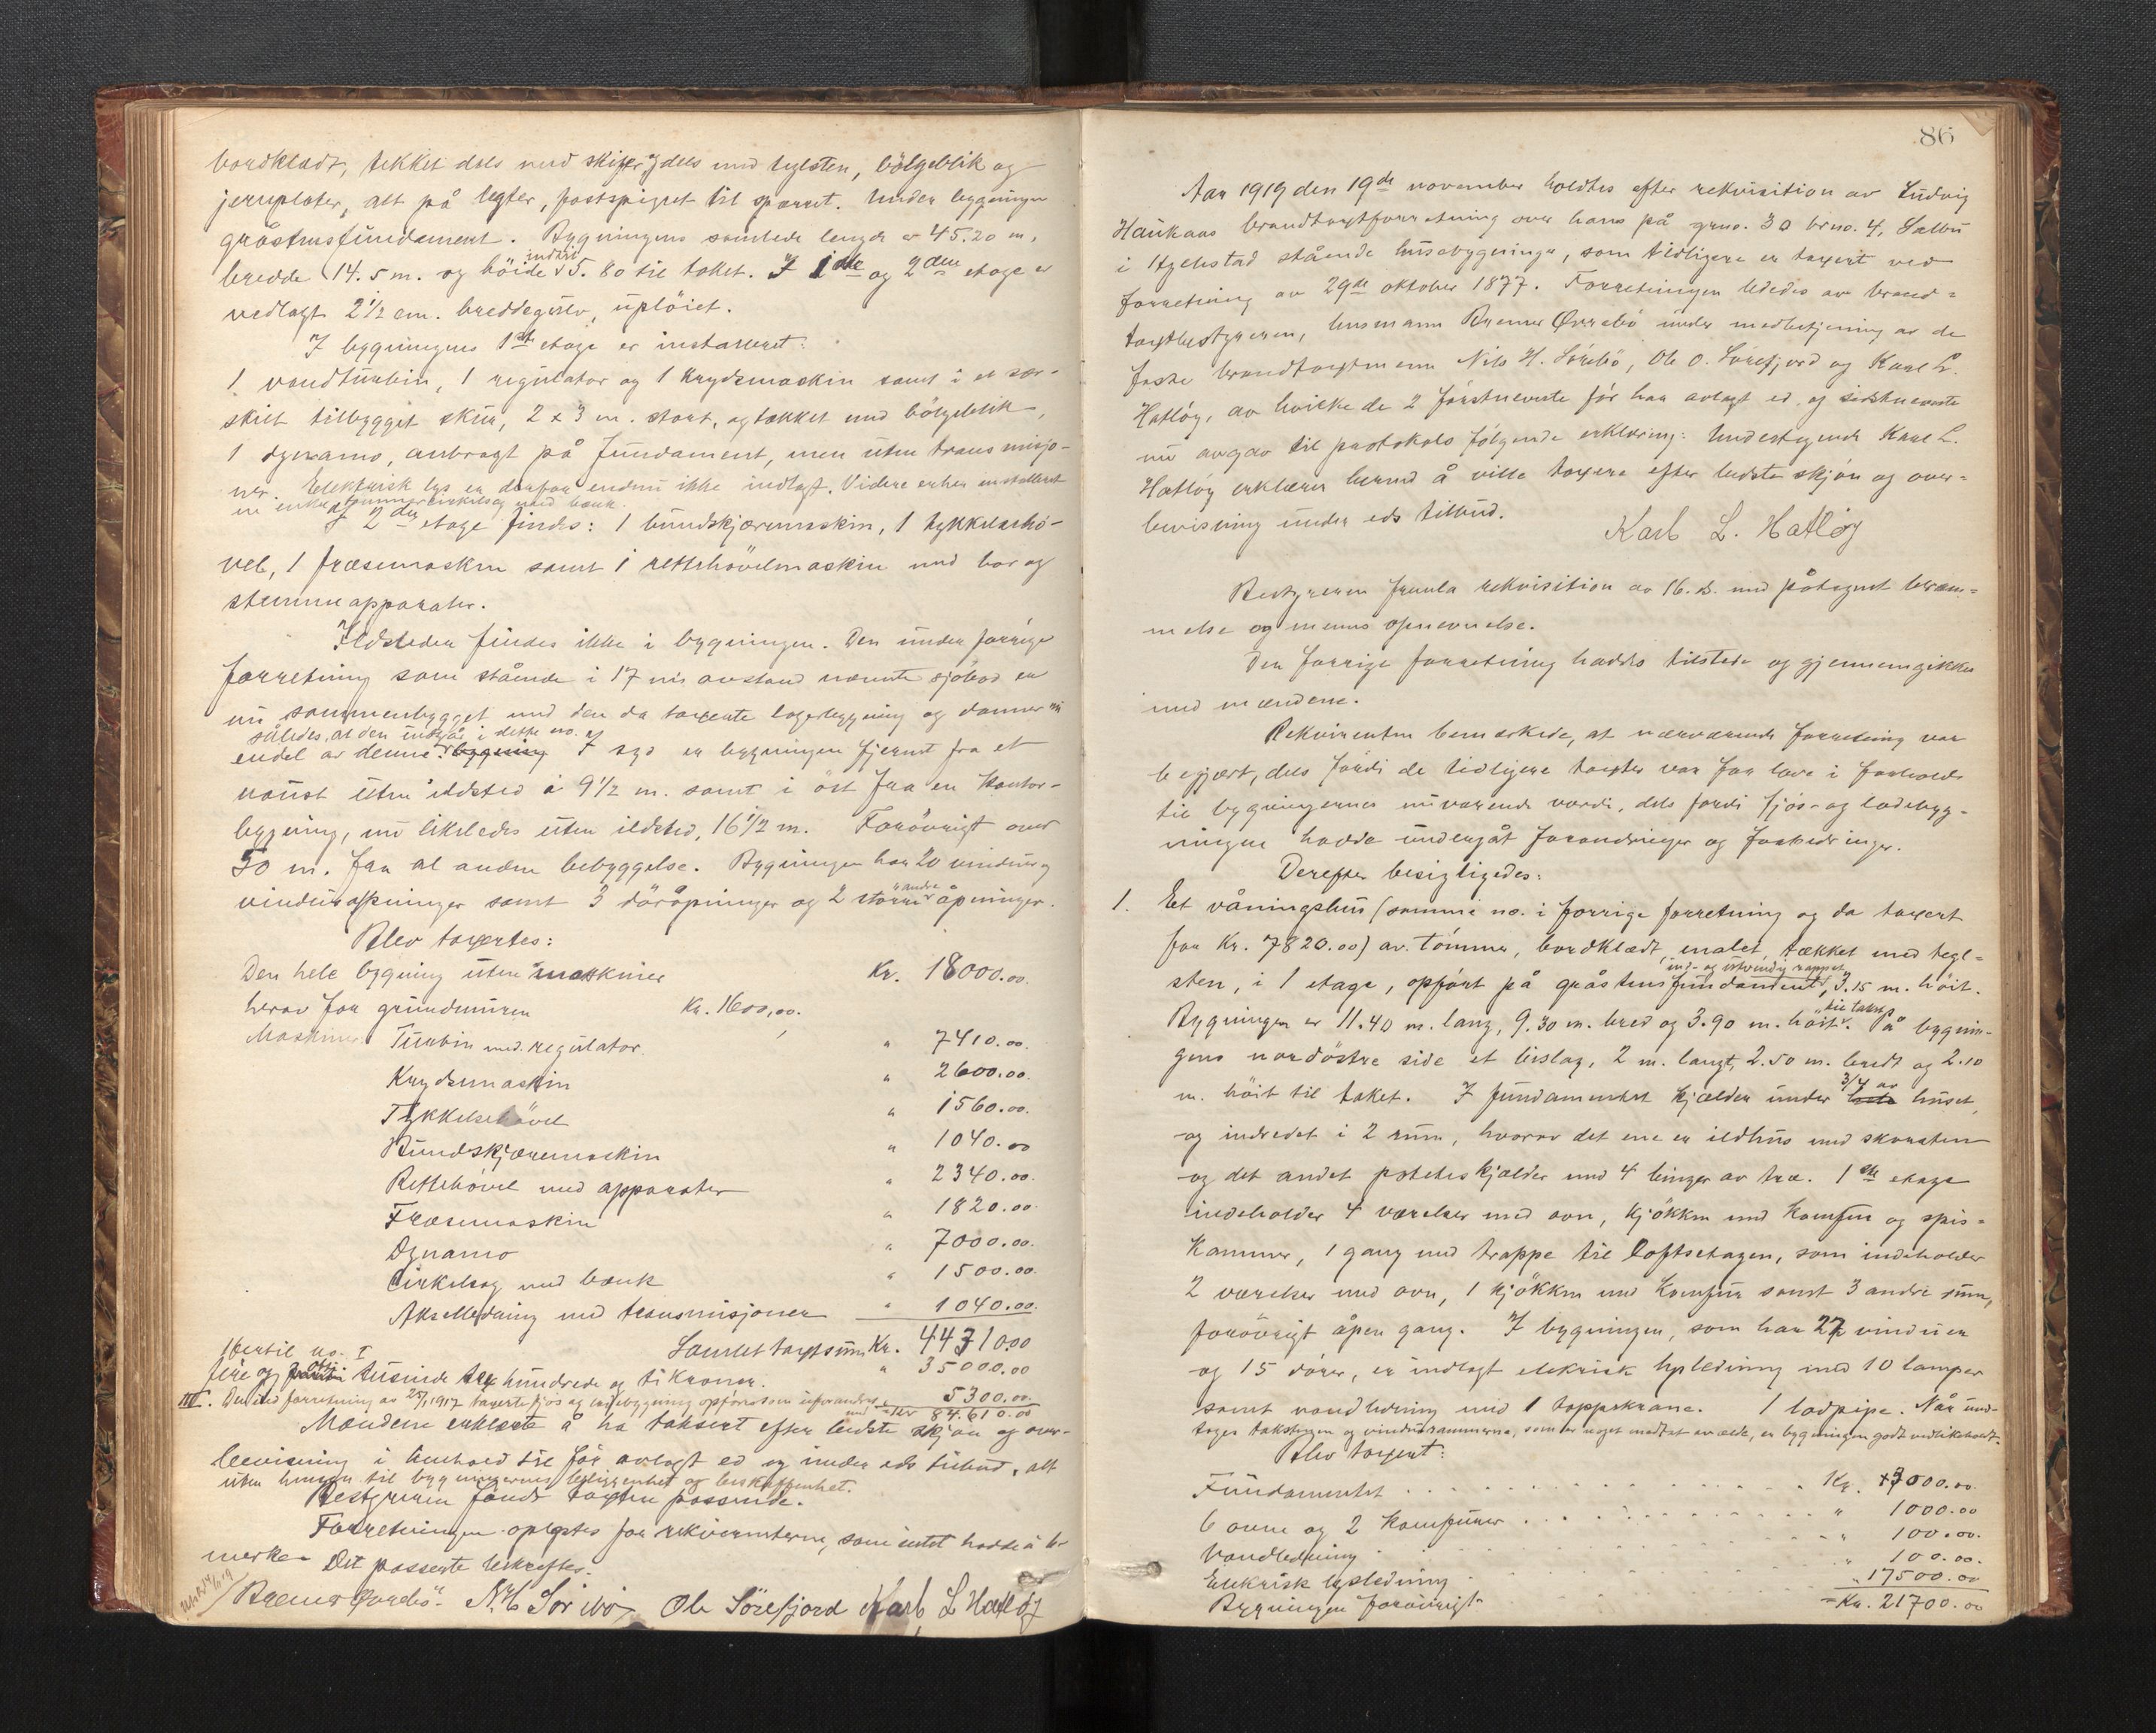 bordklædt, tekket dels med skifer, dels med teglsten, bölgeblik og
jernplater, alt på legter, fastspigret til sperret. Under bygningen
gråstensfundament. Bygningens samlede lengde er 45.20 m,
bredde 14.5 m. og höide indtil 5.80 til taket. I 1ste og 2den etage er
vedlagt 2 1/2 cm. breddegulv, uplöiet.
I bygningens 1ste etage er installeret:
1 vandturbin, 1 regulator og 1 krydsmaskin samt i et sær-
skilt tilbygget skur, 2 x 3 m. stort, og tækket med bölgeblik,
1 dynamo, anbragt på fundament, men uten transmisjo-
ner. Elektrisk lys er derfor endnu ikke indlagt. Videre er her installeret
en enkel tømmercirkelsag med bænk.
I 2den etage findes: 1 bundskjæremaskin, 1 tykkelseshö-
vel, 1 fræsemaskin samt 1 rettehövelmaskin med bor og
stemmeapparater.
Ildsteder findes ikke i bygningen. Den under forrige
forretning som stående i 17 m's avstand nævnte sjöbod er
nu sammenbygget med den da taxerte lagerbygning og danner nu
således, at den indgår i dette no.
endel av denne. bygning I syd er bygningen fjernet fra et
naust uten ildsted à 9 1/2 m. samt i öst fra en kontor-
bygning, nu likeledes uten ildsted, 16 1/2 m. Forövrigt over
30 m. fra al anden bebyggelse. Bygningen har 20 vinduer og
vinduåpninger samt 3 döråpninger og 2 större andre åpninger.
Blev taxertes:
Den hele bygning uten maskiner Kr. 18000.00
herav for grundmuren Kr. 1600,00.
Maskiner: Turbin med regulator " 7410.00
Krydsmaskin " 2600.00
Tykkelsehövel " 1560.00
Bundskjæremaskin " 1040.00
Rettehövel med apparater " 2340.00
Fræsemaskin " 1820.00
Dynamo " 7000.00
Cirkelsag med bænk " 1500.00
Akselledning med transmisjoner " 1040.00
Hertil no. I Samlet taxtsum Kr. 44310.00
fire og otti tusinde sex hundrede og ti kroner. " 35000.00
III. Den ved forretning av 25/1 1917 taxerte fjös og ladebygning opföres som uforandret med 5300.00
84.610.00
Mændene erklærte å ha taksert efter bedste skjön og over-
bevisning i henhold til för avlagt ed og under eds tilbud, alt
uten hensyn til bygningernes beliggenhet og beskaffenhet.
Bestyreren fandt taxten passende.
Forretningen oplæstes for rekvirenterne, som intet hadde å be-
merke. Det passerte bekræftes.
Bremer Övrebö N. H Sörebö Ole Sörefjord Karl L Hatlöy
86
Aar 1919 den 19de november holdtes efter rekvisition av Ludvig
Haukaas brandtaxtforretning over hans på gno. 30 brno. 4, Sælbu
i Hyllestad stående husebygninger, som tidligere er taxert ved
forretning av 29de oktober 1877. Forretningen lededes av brand-
taxtbestyreren, lensmann Bremer Övrebö under medbetjening av de
faste brandtaxtmenn Nils H. Sörebö, Ole O. Sörefjord og Karl L.
Hatlöy, av hvilke de 2 förstnevnte för har avlagt ed og sidstnevnte
nu avgav til protokols fölgende erklæring: Undertegnede Karl L.
Hatlöy erklærer hermed å ville taxere efter bedste skjön og over-
bevisning under eds tilbud.
Karl L. Hatlöy
Bestyreren fremla rekvisition av 16. d. med påtegnet beram-
melse og menns opnevnelse.
Den forrige forretning haddes tilstede og gjennemgikkes
med mændene.
Rekvirenten bemerkede, at nærværende forretning var
begjært, dels fordi de tidligere taxter var for lave i forhold
til bygningernes nuværende værdi, dels fordi fjös- og ladebyg-
ningen havde undergåt forandringer og forbedringer.
Derefter besigtigedes:
1. Et våningshus (samme no. i forrige forretning og da taxert
for Kr. 7820.00) av tömmer, bordklædt, malet, tækket med tegl-
sten, i 1 etage, opfört på gråstensfundament, ind- og utvendig rappet, 3.15 m. höit.
Bygningen er 11.40 m. lang, 9.30 m. bred og 3.90 m. höit til taket. På bygnin-
gens nordöstre side et bislag, 2 m. langt, 2.50 m. bredt og 2.10
m. höit til taket. I fundamentet kjælder under hele 3/4 av huset,
og indredet i 2 rum, hvorav det ene er ildhus med skorsten
og det andet potetskjælder med 4 binger av træ. 1ste etage
indeholder 4 værelser med ovn, kjökken med komfur og spis-
kammer, 1 gang med trappe til loftsetagen, som indeholder
2 værelser med ovn, 1 kjökken med komfur samt 3 andre rum,
forövrigt åpen gang. I bygningen, som har 27 vinduer
og 15 dörer, er indlagt elekrisk lysledning med 10 lamper
samt vandledning med 1 tappekrane. 1 lodpipe. Når und-
tages takstegen og vindusrammerne, som er noget medtat av ælde, er bygningen godt vedlikeholdt.
Blev taxert:
Fundamentet Kr. 3000.00
6 ovne og 2 komfurer " 1000.00
Vandledning " 100.00
Elekrisk lysledning " 100.00
Bygningen forövrigt " 17500.00
= Kr. 21700.00